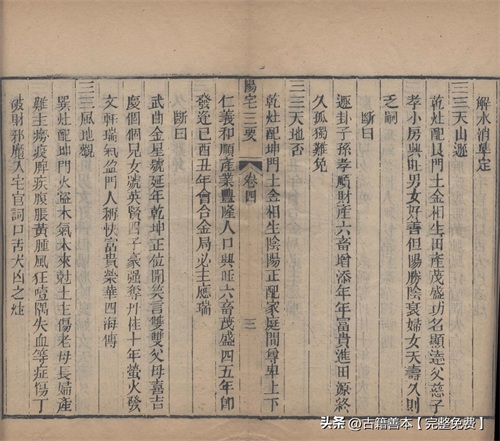 解水消卑定
天山遯
乾灶配艮門土金相生田產茂盛功名顯達父慈子
孝小房興旺男女好善但陽勝陰衰婦女夭壽久則
乏嗣
斷曰
遯卦子孫孝順財產六畜增添年年富貴進田源終
久孤獨難免
天地否
乾灶配坤門土金相生陰陽正配家庭間尊卑上下
陽宅三要 卷四 三
仁義和順產業豐隆人口興旺六畜茂盛四五年卽
發近巳酉丑年會合金局必主應瑞
斷曰
武曲金星號延年乾坤正位開笑言雙雙父母喜吉
慶個個兒女號英賢四子豪強登州十年螢火發
文軒瑞氣盈門人稱快富貴榮華四海傳
風地觀
巽灶配坤門火盜木氣木來尅土主傷老母長婦產
難主癆疫脾疾腹脹黃腫風狂噎隔失血等症傷丁
破財邪魔入宅官詞口舌大凶之灶
头条 @古籍善本【完整免费】